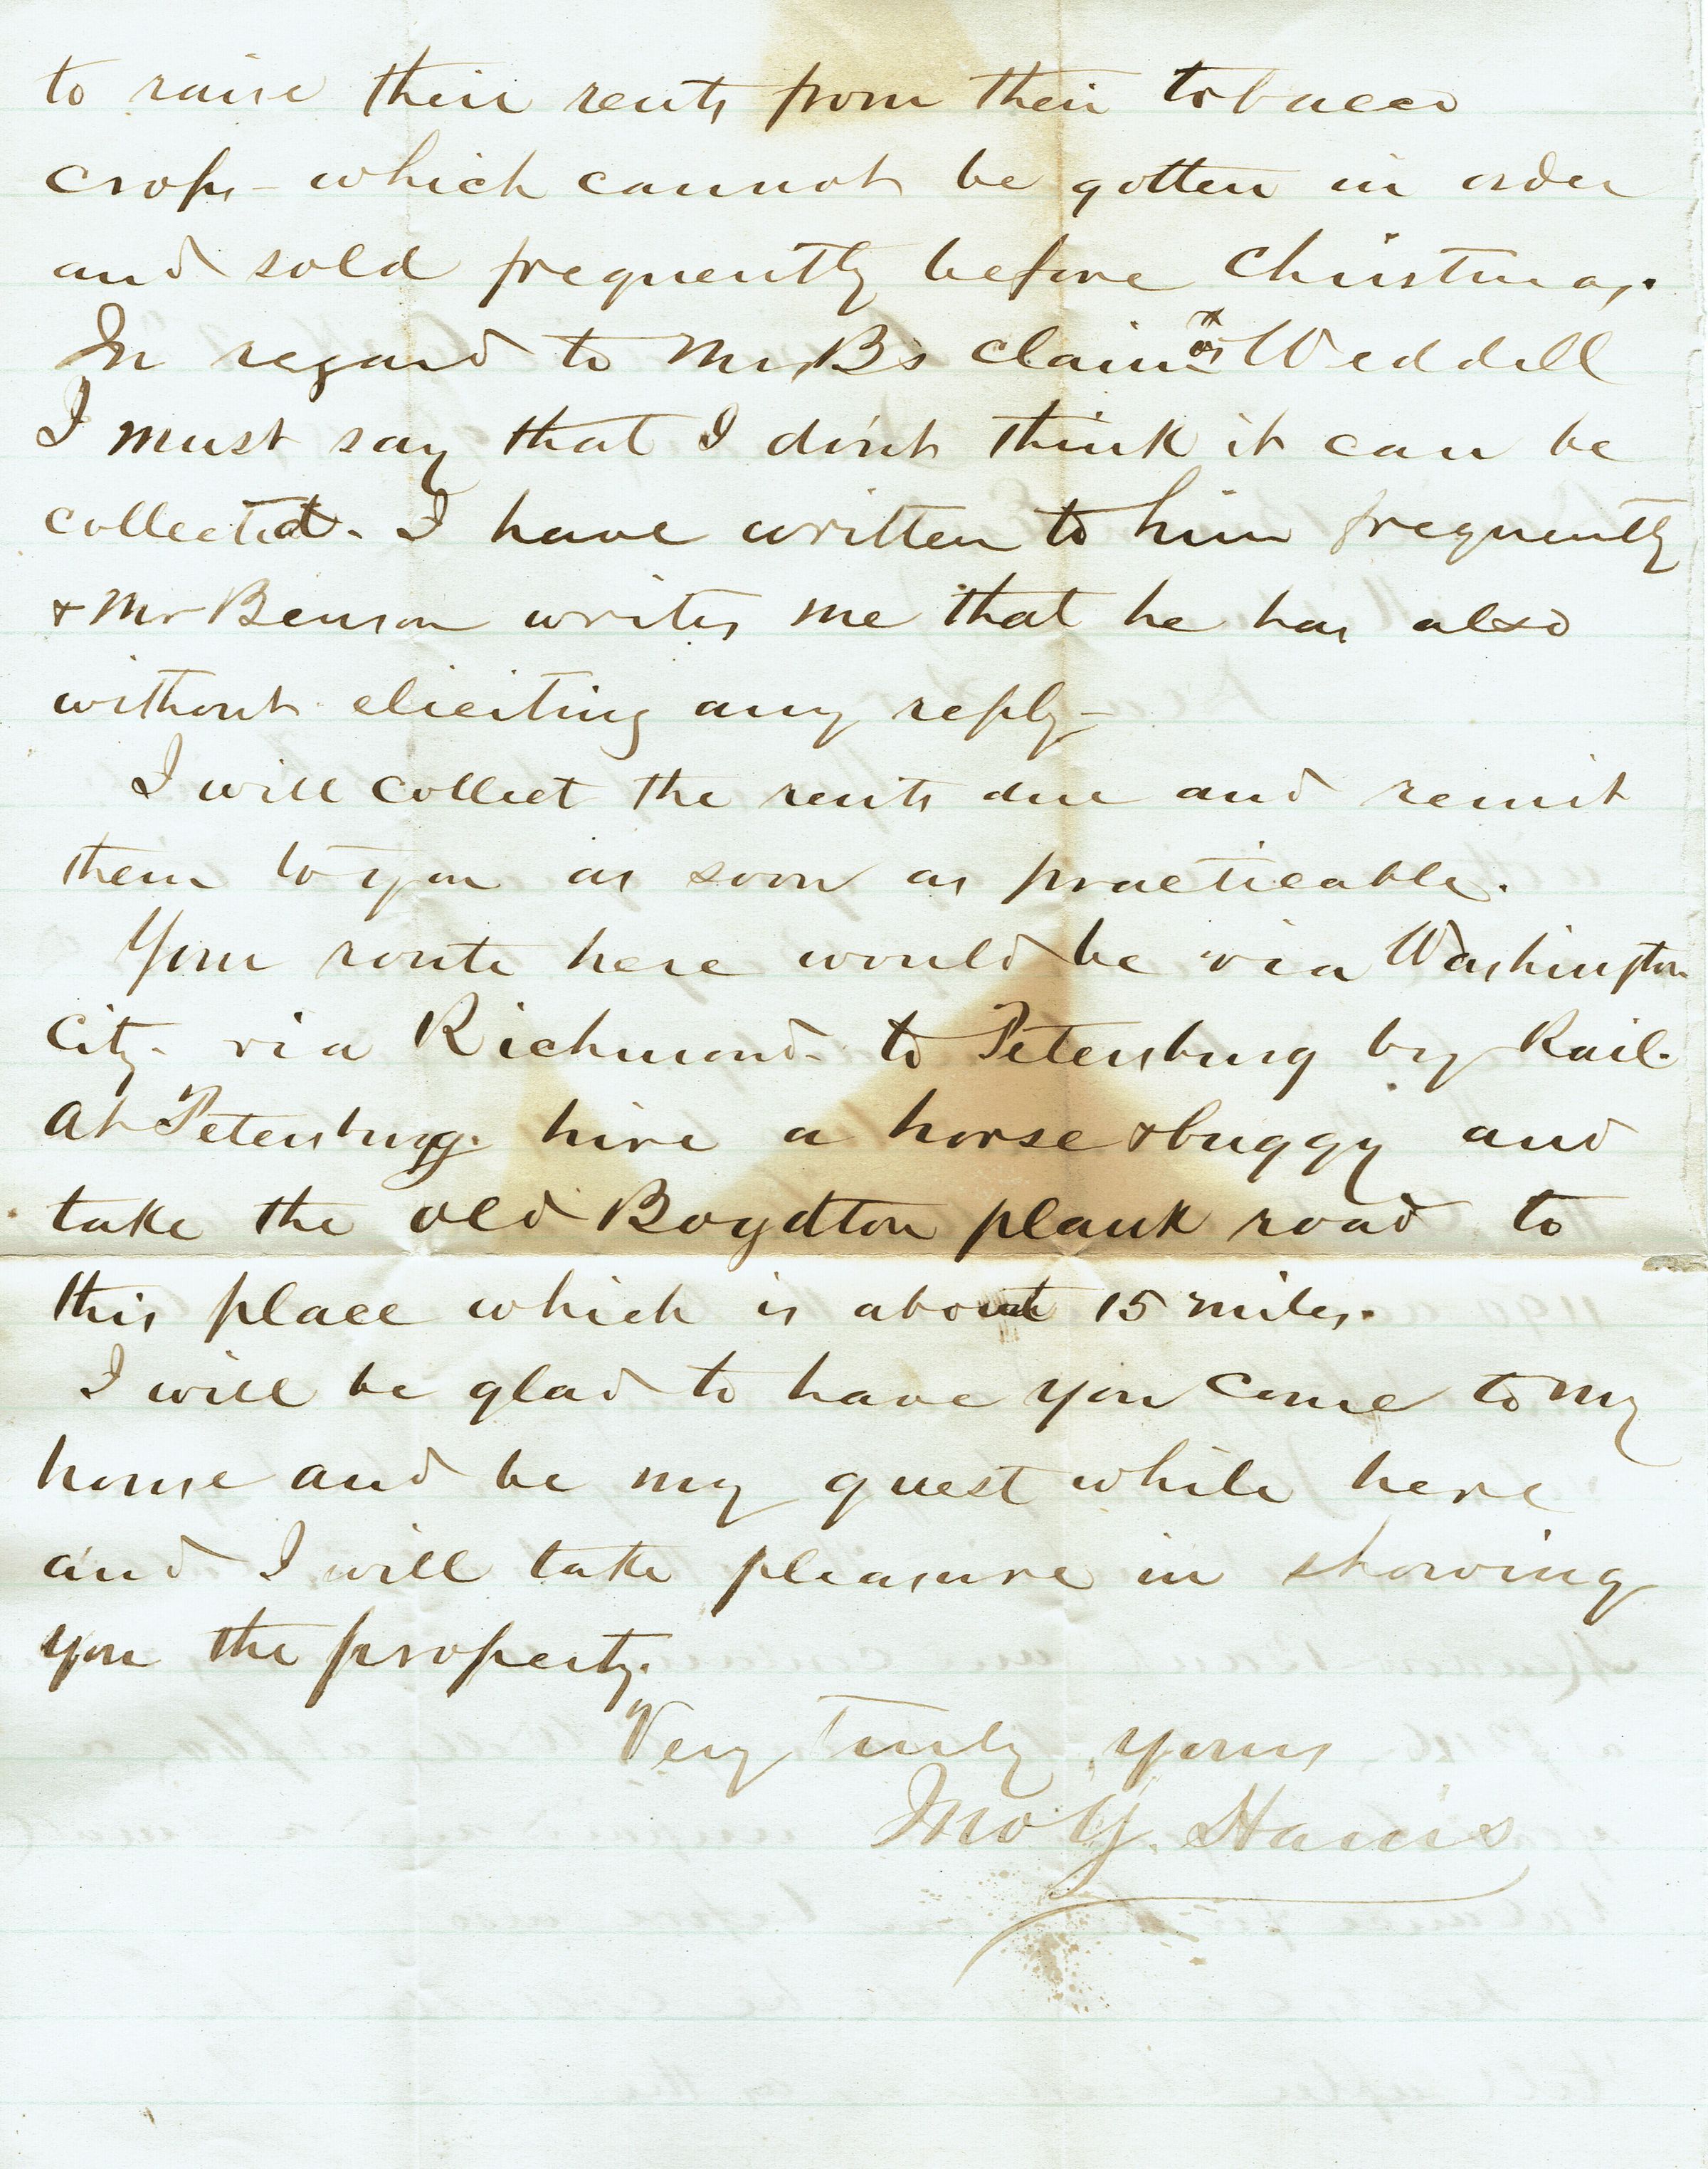 to raise their rents from their tobacco
crops - which cannot be gotten in order
and sold frequently before Christmas.
In regard to Mrs B's claim vs Weddell
I must say that I don't think it can be
collected. I have written to him frequently
& Mr Benson writes me that he has also
without eliciting any reply -
I will collect the rents due and remit
them to you as soon as practicable.
Your route here would be via Washington
City. via Richmond - to Petersburg by Rail.
At Petersburg. hire a horse & buggy and
take the old Boydton plank road to
this place which is about 15 miles.
I will be glad to have you come to my
house and be my guest while here
and I will take pleasure in showing
you the property.
Very Truly yours
Jno Y. Harris